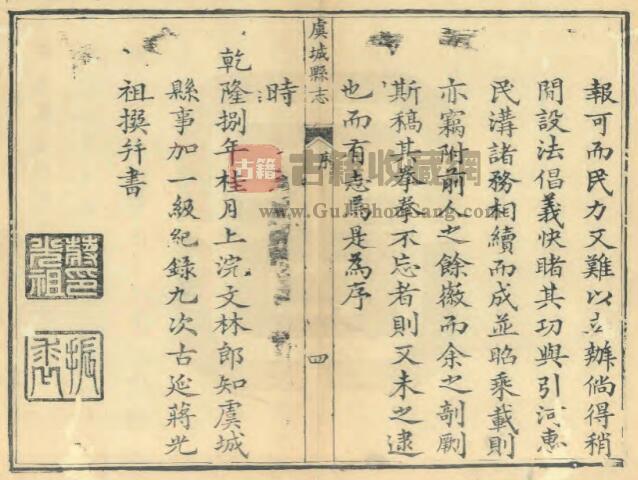 報可而民力又難以立辦倘得稍
閒設法倡義快睹其功與引河惠
民溝諸務相續而成並昭乘載則
亦竊附前人之餘徽而余之剞劂
斯稿其拳拳不忘者則又未之逮
也而有志焉是為序
虞城縣志
序
四
時
乾隆捌年桂月上浣文林郎知虞城
縣事加一級紀錄九次古延蔣光
祖撰并書
蔣光祖印
振裘
古籍
古籍收藏網
www.GuJiShouCang.com